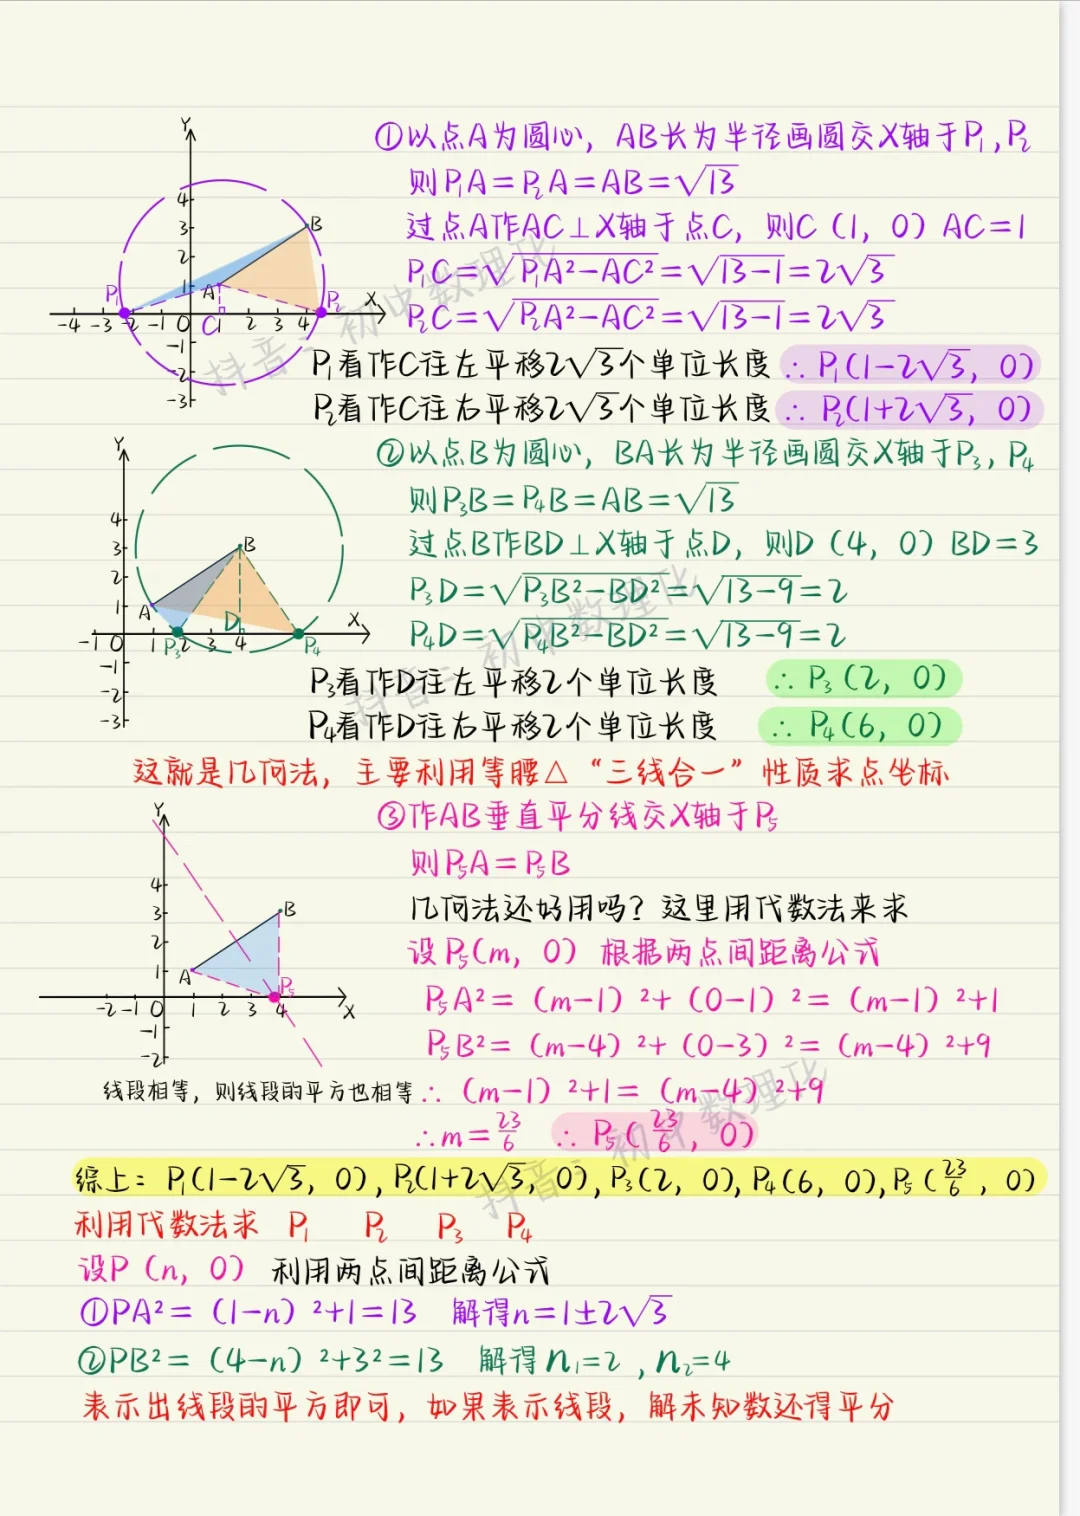 ①以点A为圆心，AB长为半径画圆交X轴于P₁,P₂
则P₁A=P₂A=AB=√13
过点A作AC⊥X轴于点C，则C（1，0）AC=1
P₁C=√(P₁A²-AC²)=√(13-1)=2√3
P₂C=√(P₂A²-AC²)=√(13-1)=2√3
P₁看作C往左平移2√3个单位长度 ∴P₁(1-2√3，0)
P₂看作C往右平移2√3个单位长度 ∴P₂(1+2√3，0)
Y
4
3
2
1
B
A
P₁
P₂
X
-4 -3 -2 -1 0 C 1 2 3 4
-1
-2
-3
抖音：初中数理化
②以点B为圆心，BA长为半径画圆交X轴于P₃，P₄
则P₃B=P₄B=AB=√13
过点B作BD⊥X轴于点D，则D（4，0）BD=3
P₃D=√(P₃B²-BD²)=√(13-9)=2
P₄D=√(P₄B²-BD²)=√(13-9)=2
P₃看作D往左平移2个单位长度 ∴P₃（2，0）
P₄看作D往右平移2个单位长度 ∴P₄(6，0)
Y
4
3
2
1
B
A
D
X
-1 0 1 P₃ 2 3 4 P₄
-1
-2
-3
抖音：初中数理化
这就是几何法，主要利用等腰△“三线合一”性质求点坐标
③作AB垂直平分线交X轴于P₅
则P₅A=P₅B
几何法还好用吗？这里用代数法来求
设P₅(m，0）根据两点间距离公式
P₅A²=（m-1）²+（0-1）²=（m-1）²+1
P₅B²=（m-4）²+（0-3）²=（m-4）²+9
Y
4
3
2
1
B
A
P₅
-2 -1 0 1 2 3 4 X
-1
-2
线段相等，则线段的平方也相等 ∴（m-1）²+1=（m-4）²+9
∴m=23/6 ∴P₅（23/6，0）
抖音：初中数理化
综上：P₁(1-2√3，0),P₂(1+2√3，0),P₃(2，0),P₄(6，0),P₅（23/6，0）
利用代数法求 P₁ P₂ P₃ P₄
设P（n，0）利用两点间距离公式
①PA²=（1-n）²+1=13 解得n=1±2√3
②PB²=（4-n）²+3²=13 解得n₁=2，n₂=4
表示出线段的平方即可，如果表示线段，解未知数还得平分